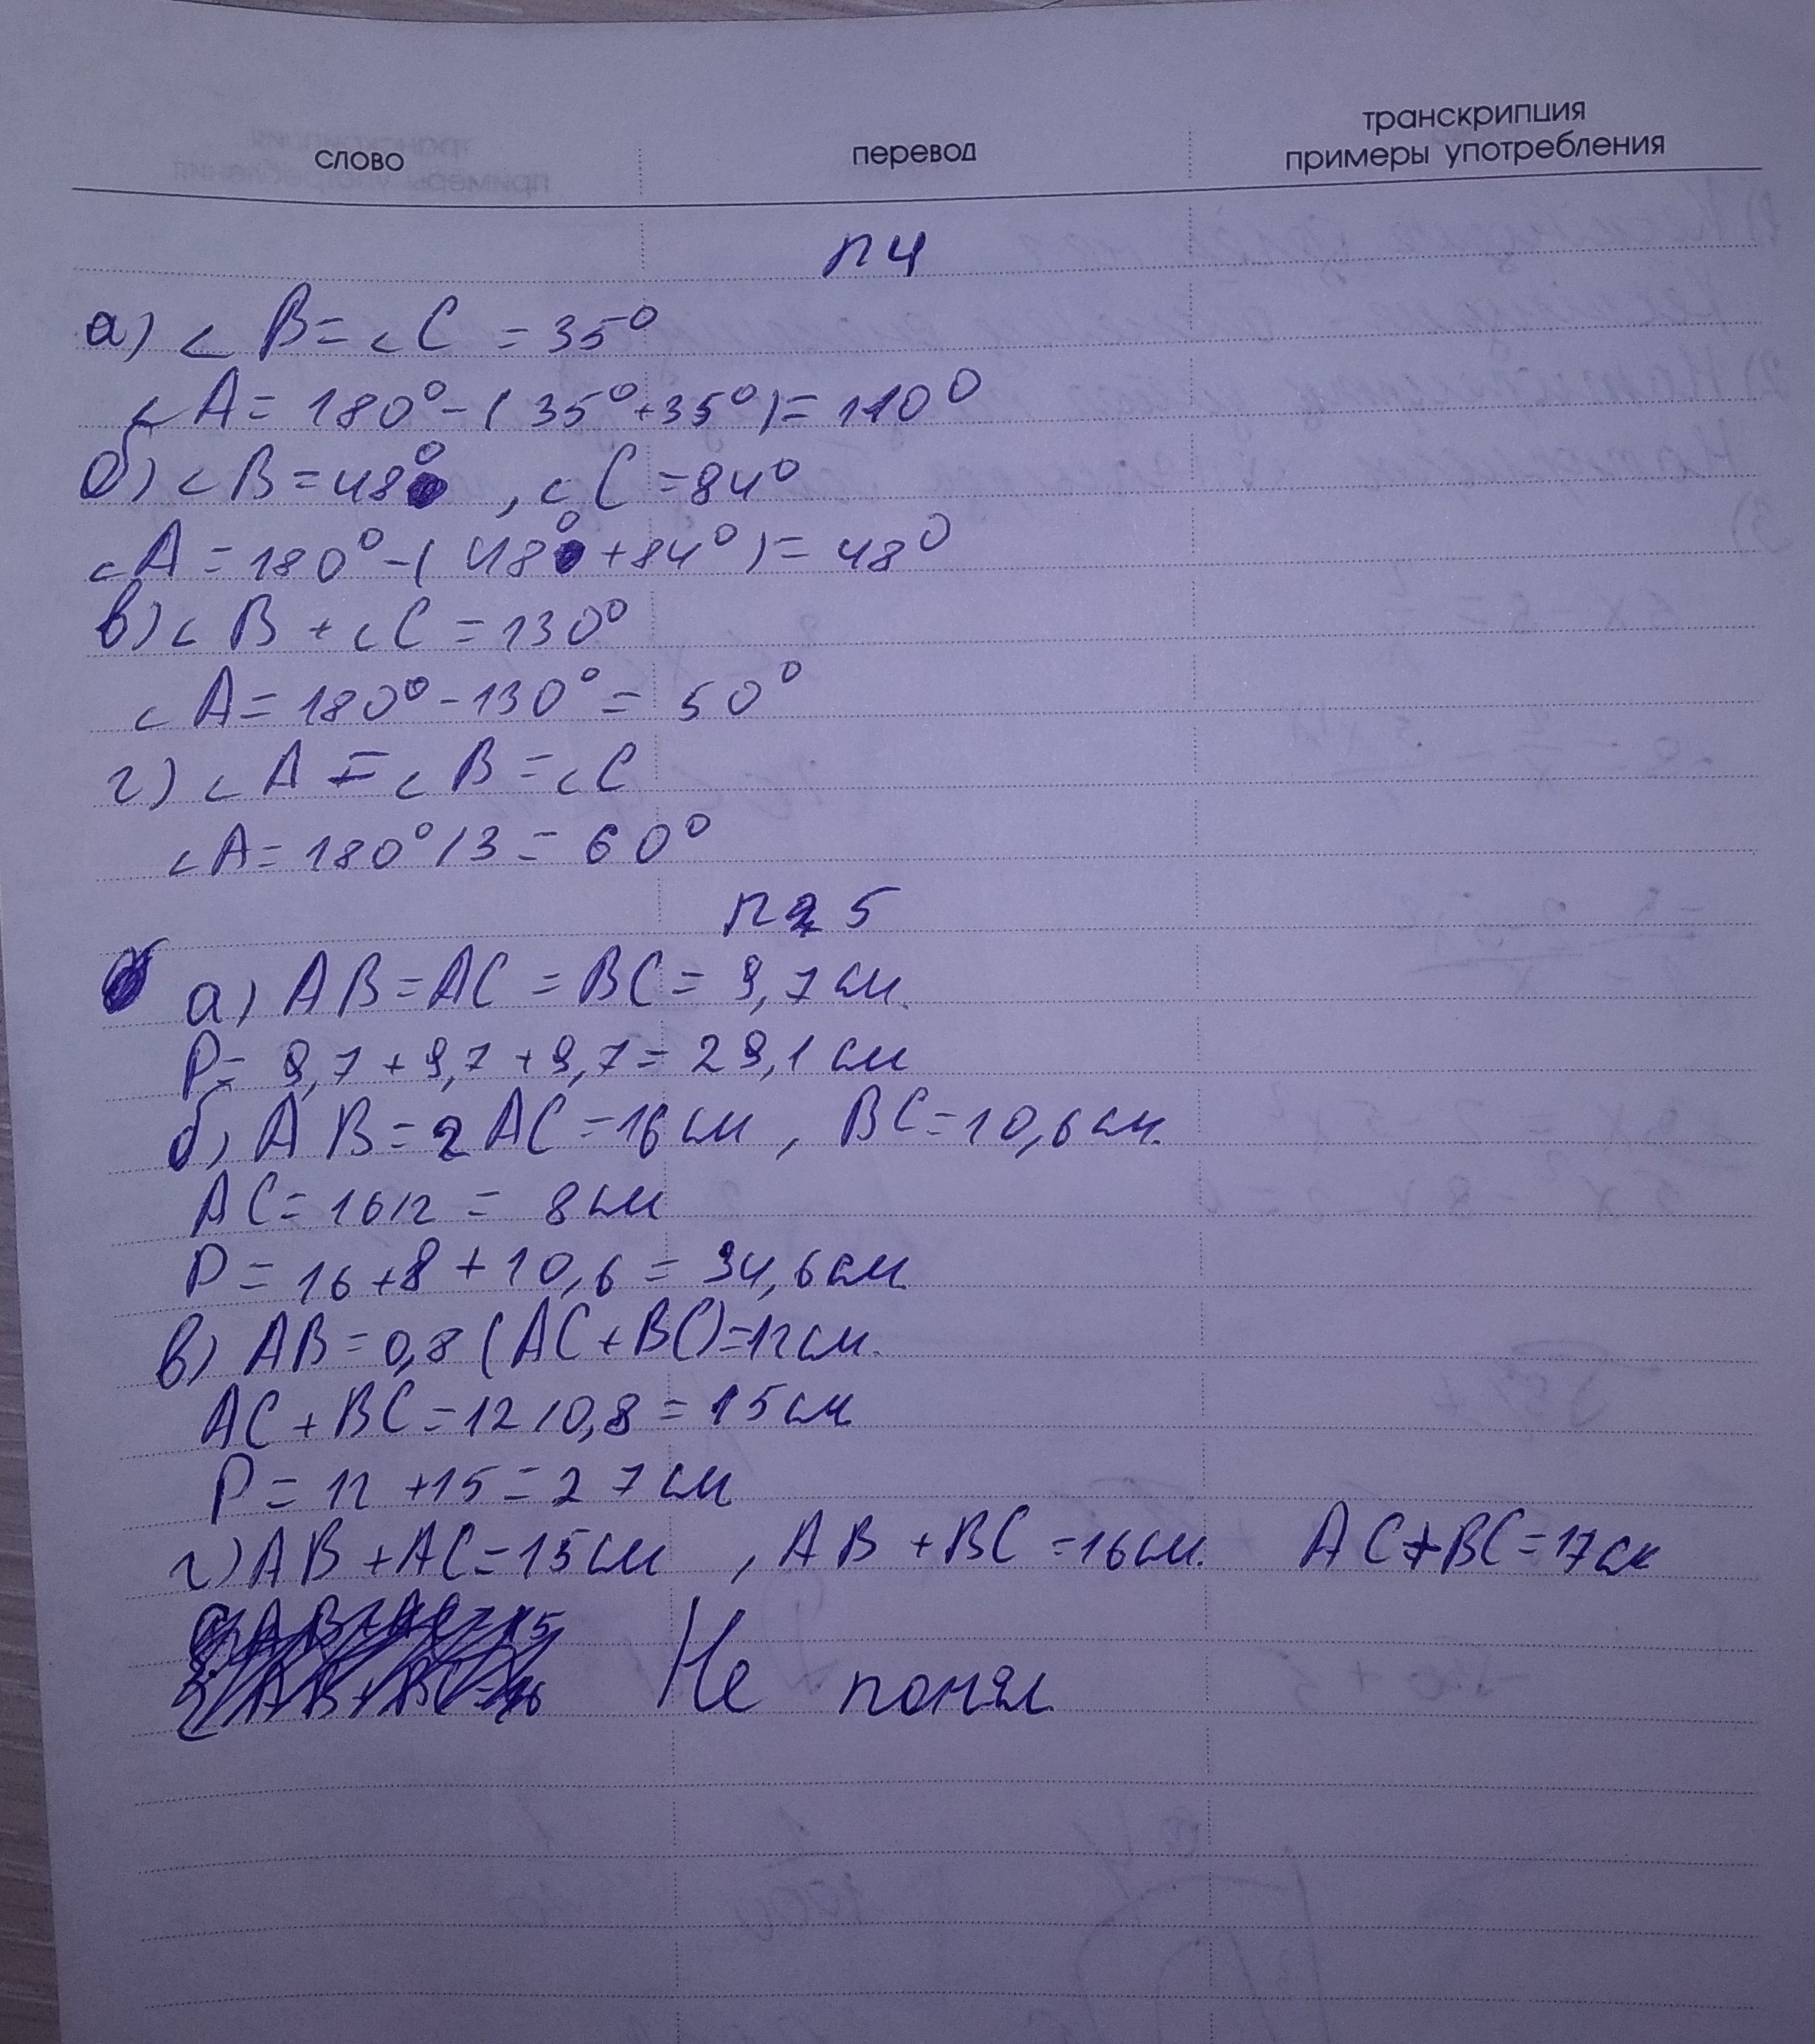 слово перевод транскрипция
примеры употребления
n 4
а) ∠B = ∠C = 35°
∠A = 180° - (35° + 35°) = 110°
б) ∠B = 48°, ∠C = 84°
∠A = 180° - (48° + 84°) = 48°
в) ∠B + ∠C = 130°
∠A = 180° - 130° = 50°
г) ∠A = ∠B = ∠C
∠A = 180° / 3 = 60°
n 5
а) AB = AC = BC = 9,7 см.
P = 9,7 + 9,7 + 9,7 = 29,1 см
б) AB = 2 AC = 16 см, BC = 10,6 см.
AC = 16/2 = 8 см
P = 16 + 8 + 10,6 = 34,6 см
в) AB = 0,8 (AC + BC) = 12 см.
AC + BC = 12 / 0,8 = 15 см
P = 12 + 15 = 27 см
г) AB + AC = 15 см, AB + BC = 16 см. AC + BC = 17 см
Не понял